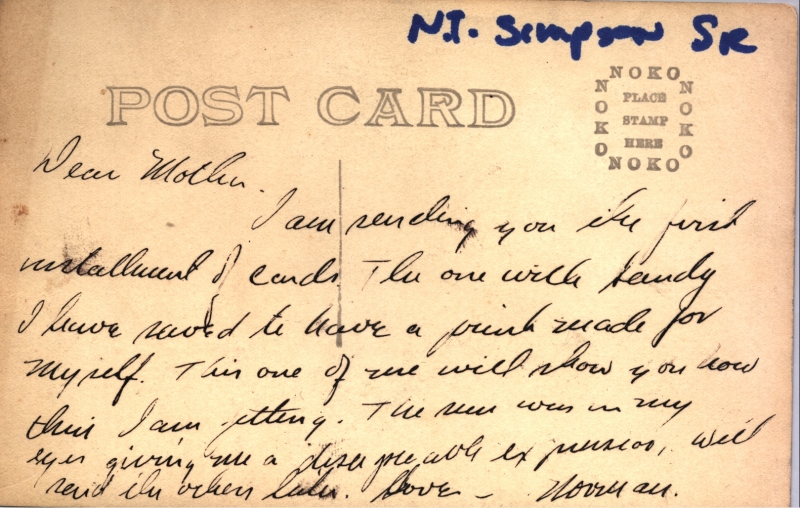 N.T. Simpson SR
POST CARD
NOKO
NOKO
PLACE
STAMP
HERE
NOKO
NOKO
Dear Mother.
I am sending you the first
installment of cards. The one with Sandy
I have saved to have a print made for
myself. This one of me will show you how
thin I am getting. The sun was in my
eyes giving me a disagreeable expression, will
send the others later. Love – Norman.